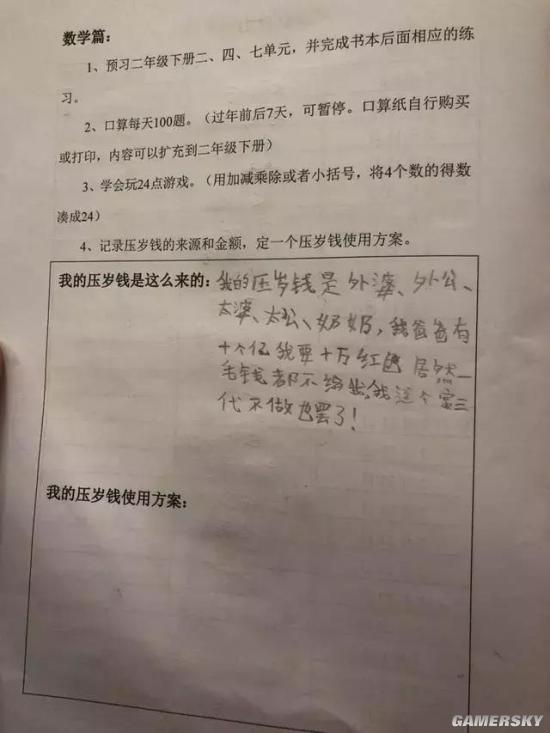 数学篇：
1、预习二年级下册二、四、七单元，并完成书本后面相应的练
习。
2、口算每天100题。（过年前后7天，可暂停。口算纸自行购买
或打印，内容可以扩充到二年级下册）
3、学会玩24点游戏。（用加减乘除或者小括号，将4个数的得数
凑成24）
4、记录压岁钱的来源和金额，定一个压岁钱使用方案。
我的压岁钱是这么来的：我的压岁钱是外婆、外公、
太婆、太公、奶奶，我爸爸有
十个亿我要十万红包居然一
毛钱都不给我这个富三
代不做也罢了！
我的压岁钱使用方案：
GAMERSKY